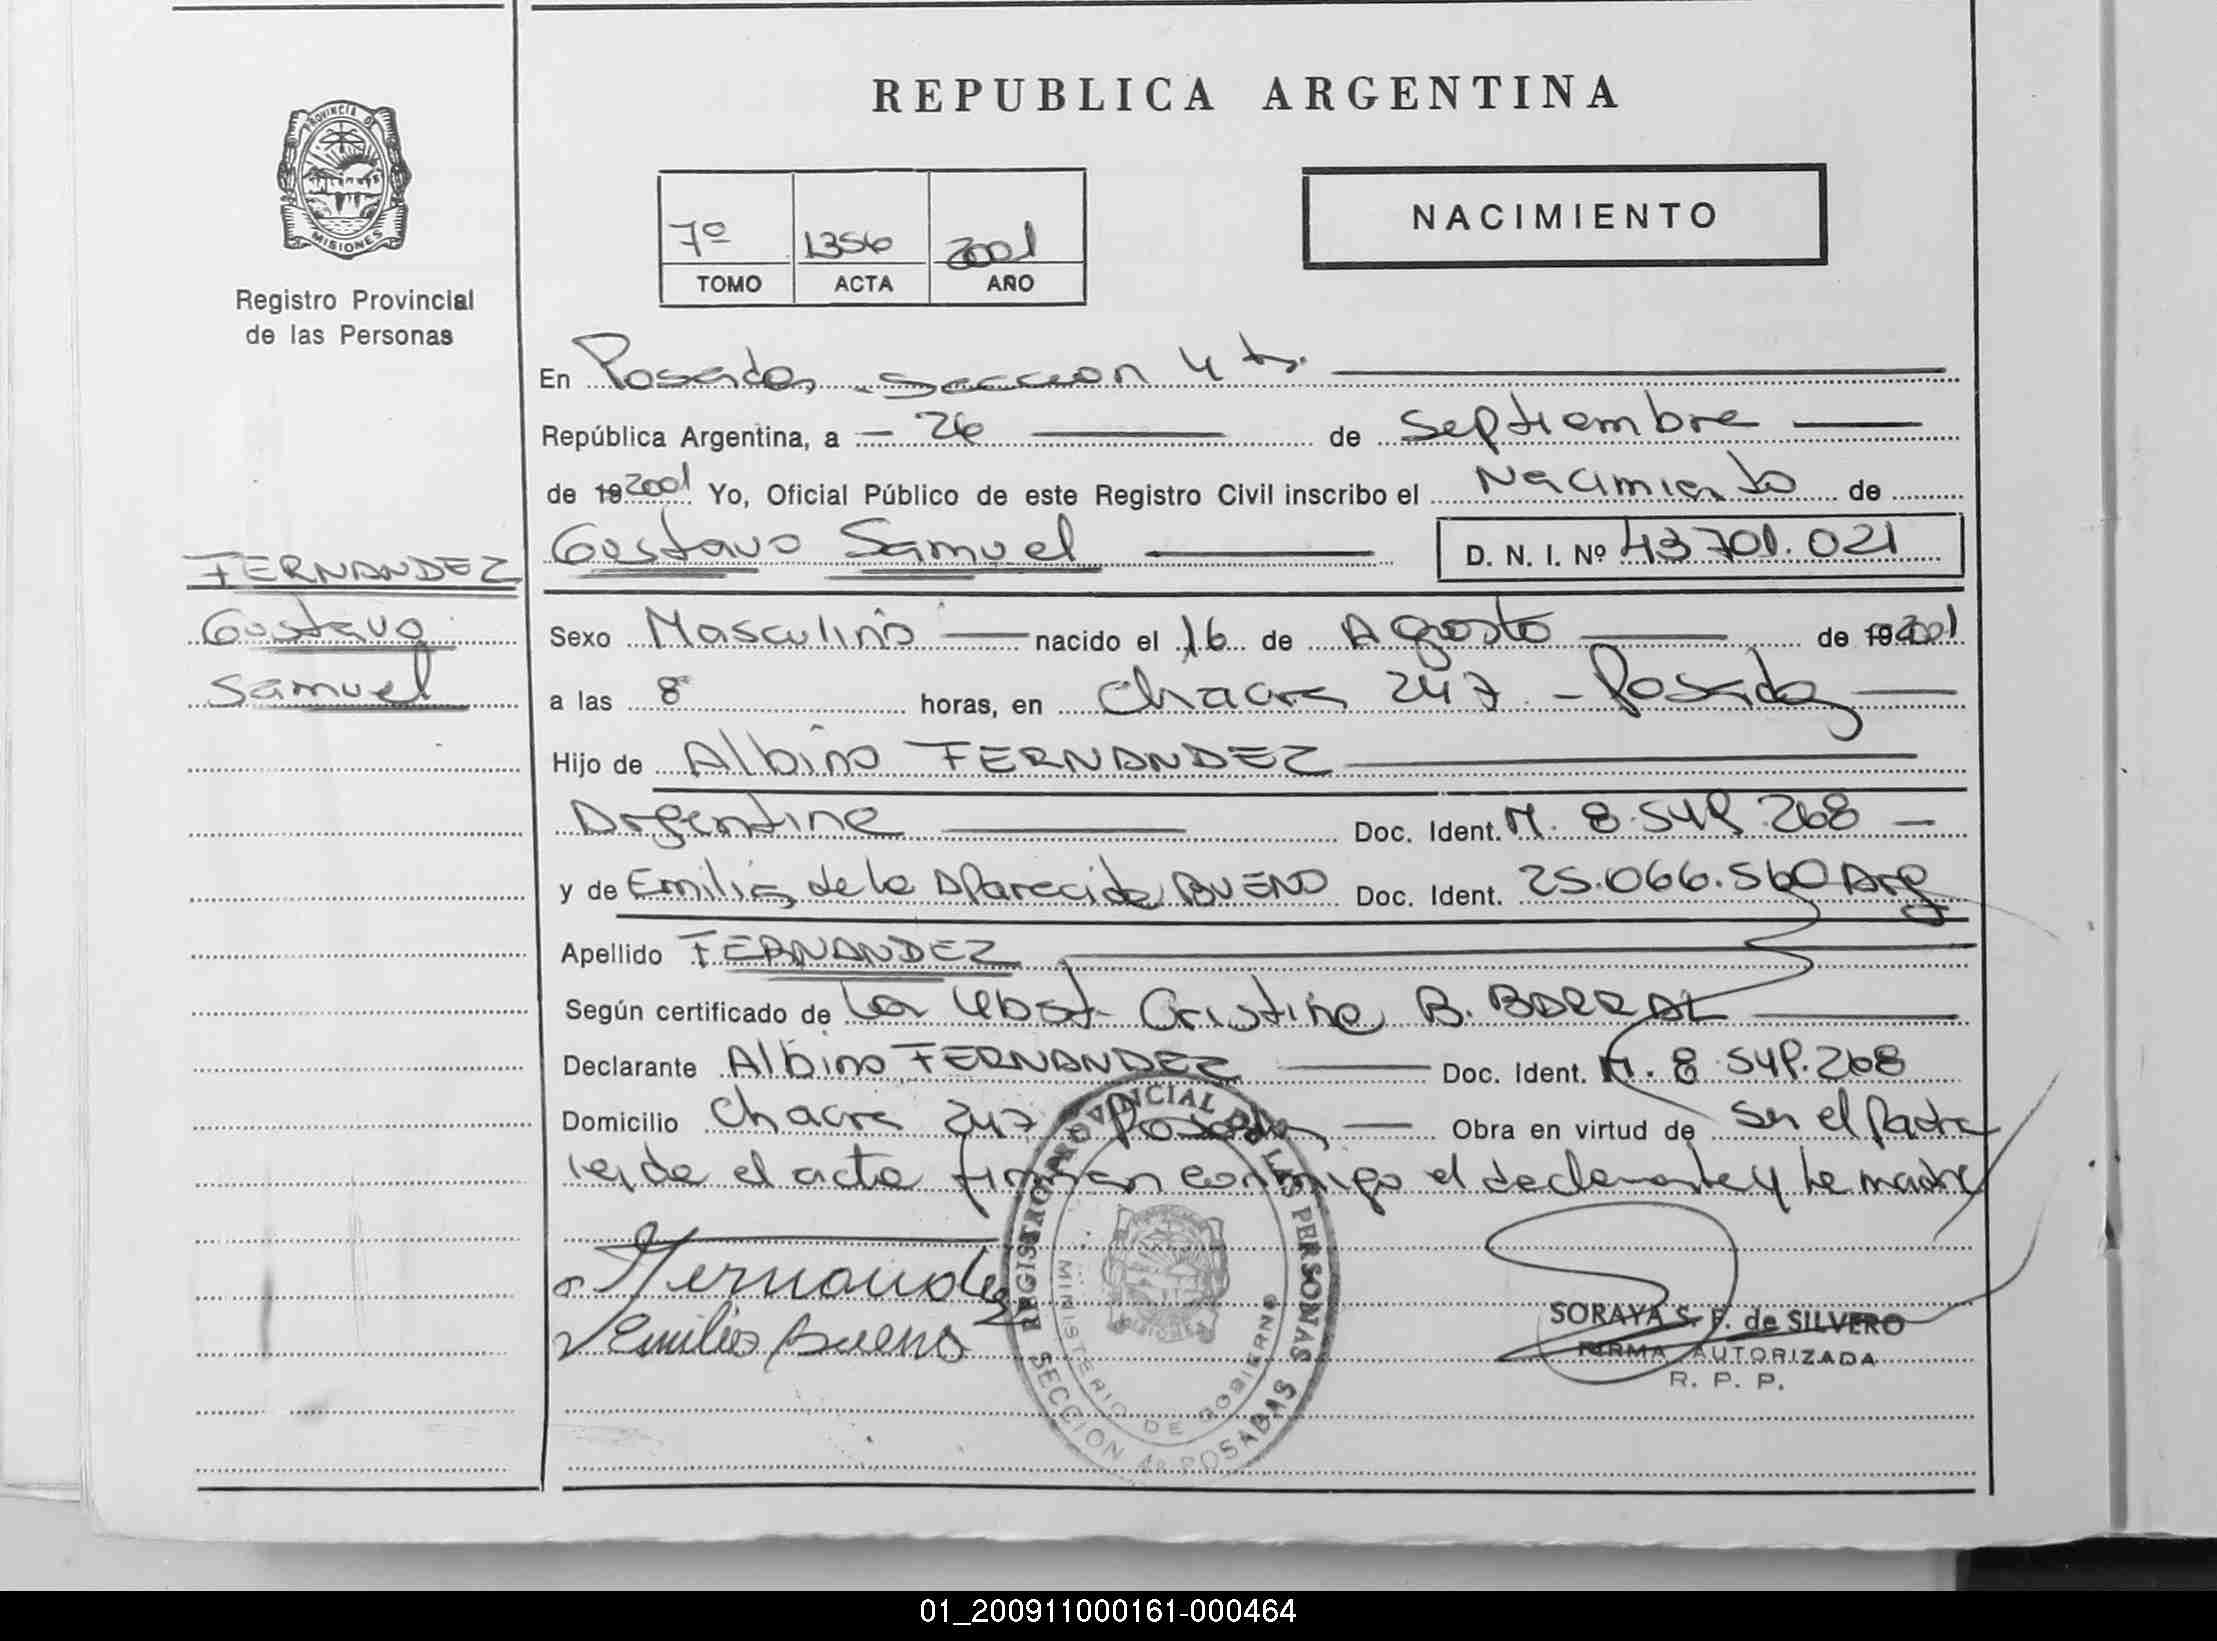 REPUBLICA ARGENTINA
PROVINCIA DE
MISIONES
Registro Provincial
de las Personas
7º 1356 2001
TOMO ACTA AÑO
NACIMIENTO
En Posadas, seccion 4ta.
República Argentina, a - 26 de Septiembre
de 19 2001 Yo, Oficial Público de este Registro Civil inscribo el Nacimiento de
Gustavo Samuel D. N. I. Nº 43.701.021
FERNANDEZ
Gustavo
Samuel
Sexo Masculino nacido el 16 de Agosto de 19 2001
a las 8 horas, en Chacra 247 - Posadas
Hijo de Albino FERNANDEZ
Argentina Doc. Ident. M. 8.549.268
y de Emilia de la Aparecida BUENO Doc. Ident. 25.066.560 Arg
Apellido FERNANDEZ
Según certificado de la Obst. Cristina B. BARRAL
Declarante Albino FERNANDEZ Doc. Ident. M. 8.549.268
Domicilio Chacra 247 Posadas Obra en virtud de ser el padre
leida el acta firman conmigo el declarante y la madre
Fernandez
Emilia Bueno
REGISTRO PROVINCIAL DE LAS PERSONAS
MINISTERIO DE GOBIERNO
SECCION 4ª POSADAS
MISIONES
SORAYA S. F. de SILVERO
FIRMA AUTORIZADA
R. P. P.
01_200911000161-000464